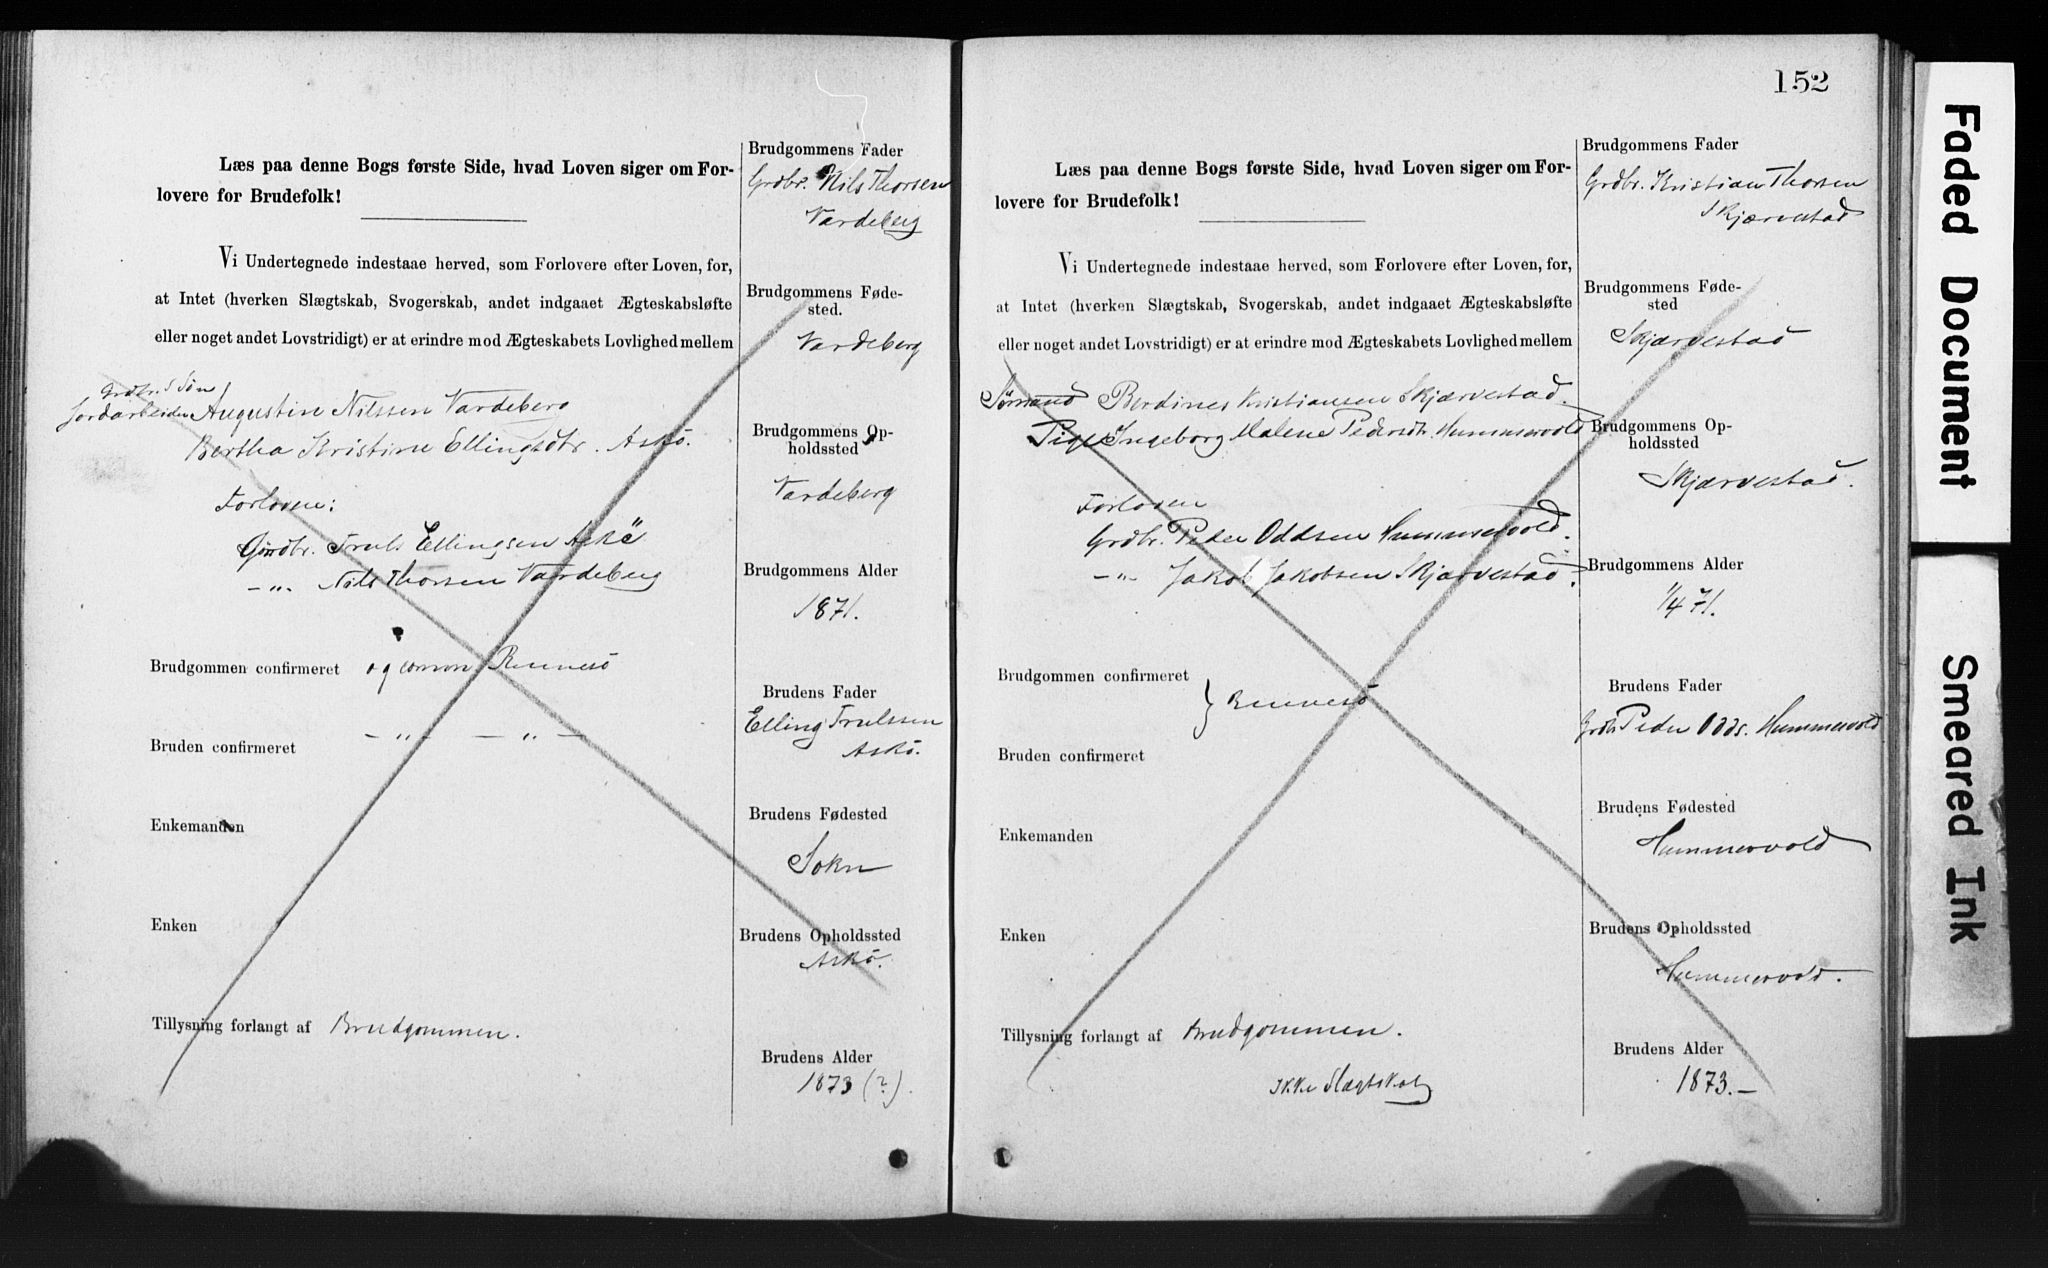 Læs paa denne Bogs første Side, hvad Loven siger om For-
lovere for Brudefolk!
Vi Undertegnede indestaae herved, som Forlovere efter Loven, for,
at Intet (hverken Slægtskab, Svogerskab, andet indgaaet Ægteskabsløfte
eller noget andet Lovstridigt) er at erindre mod Ægteskabets Lovlighed mellem
Grdbr.s Søn
Jordarbeider Augustin Nilssen Vardeberg
Bertha Kristine Ellingsdtr. Askø.
Forlovere:
Gaardbr. Truls Ellingsen Askø
-„- Nils Thorsen Vardeberg
Brudgommen confirmeret og Rennesø
Bruden confirmeret -„- -„-
Enkemanden
Enken
Tillysning forlangt af Brudgommen.
Brudgommens Fader
Grdbr. Nils Thorsen
Vardeberg
Brudgommens Føde-
sted.
Vardeberg
Brudgommens Op-
holdssted
Vardeberg
Brudgommens Alder
1871.
Brudens Fader
Elling Trulssen
Askø.
Brudens Fødested
Sokn
Brudens Opholdssted
Askø.
Brudens Alder
1873 (?).
152
Læs paa denne Bogs første Side, hvad Loven siger om For-
lovere for Brudefolk!
Vi Undertegnede indestaae herved, som Forlovere efter Loven, for,
at Intet (hverken Slægtskab, Svogerskab, andet indgaaet Ægteskabsløfte
eller noget andet Lovstridigt) er at erindre mod Ægteskabets Lovlighed mellem
Sømand Berdines Kristiansen Skjærvestad.
Pige Ingeborg Malene Pedersdt. Hummervold
Forlovere
Grdbr. Peder Oddsen Hummervold.
-„- Jakob Jakobsen Skjærvestad.
Brudgommen confirmeret
} Rennesø
Bruden confirmeret
Enkemanden
Enken
Tillysning forlangt af Brudgommen.
Ikke Slægtskab
Brudgommens Fader
Grdbr. Kristian Thorsen
Skjærvestad
Brudgommens Føde-
sted
Skjærvestad
Brudgommens Op-
holdssted
Skjærvestad.
Brudgommens Alder
1/4 71.
Brudens Fader
Grdbr Peder Odds. Hummervold
Brudens Fødested
Hummervold
Brudens Opholdssted
Hummervold.
Brudens Alder
1873.-
Faded Document
Smeared Ink